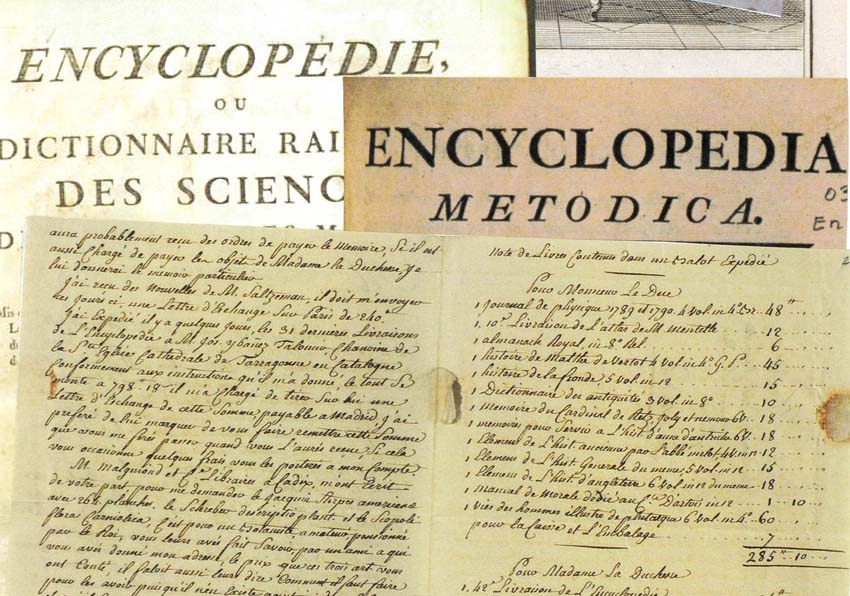 ENCYCLOPÉDIE,
OU
DICTIONNAIRE RAI
DES SCIENC
ENCYCLOPEDIA
METÓDICA.
03
En
aura probablement reçu des ordres de payer le Memoire, Si il est
aussi Chargé de payer les objets de Madame la Duchesse, je
lui donnerai le memoir particulier
J'ai reçu des Nouvelles de M. Saltzman, il doit m'envoyer
ces jours ci, une Lettre d'Echange Sur Paris de 240
J'ai Expedié il y a quelques Jours, les 31 dernieres Livraisons
de L'Encyclopedie à M. Jos. Foguet Chanoine de
la Ste Eglise Cathédrale de Tarragonne en Catalogne
Conformement aux instructions qu'il m'a donné, le tout Se
monte a 798. 18 il m'a Chargé de tirer Sur lui une
Lettre d'Echange de cette Somme, payable a Madrid j'ai
preferé de lui marquer de vous faire remettre cette Somme
que vous me ferés passer quand vous L'aurés reçue, Si cela
vous occasionne quelques frais, vous les porterés a mon Compte.
Libraires à Cadix, m'ont Ecrit
de votre part pour me demander le Jacquin Stirpes americanæ
avec 264 planches, le Schreber descriptio plant. et le Scopoli
flora Carniolica, C'est pour un Botaniste, amateur, pensionné
par le Roi, vous leurs avés fait Savoir, par un ami a qui
vous avés donné mon adresse, le prix que ces trois art. vous
ont Couté, il faloit aussi leurs dire Comment il faut faire
pour les avoir puisqu'il n'en Existe
Note de Livres Contenus dans un Balot Expedié
Pour Monsieur Le Duc
1, Journal de physique 1789 et 1790. 4 vol. in 4° 48
1, 10e Livraison de L'atlas de M. Mentelle 12
1, almanach Royal, in 8° Rel. 6
1, histoire de Malthe de Vertot 4 vol in 4° G. P. 45
1, histoire de la fronde, 5 vol in 12 15
1, Dictionnaire des antiquités 3 vol in 8° 10
1, Memoire du Cardinal de Retz, Joly et nemours 6 v. 18
1, memoires pour Servir a L'hist. d'anne d'autriche 6 v. 18
1, Element de L'hist. ancienne par L'abbé millot 4 v. in 12 12
1, Element de L'hist Generale du meme, 5 vol in 12 15
1, Element de L'hist d'angleterre 6 vol in 12 du meme 18
1, Manuel de Morale dédié au Cte D'artois in 12 1 10
1, vies des hommes illustre de plutarque 6 vol in 4° 60
pour la Caisse et L'Embalage 7
285 10
Pour Madame La Duchesse
1, 42e Livraison de L'Encyclopedie